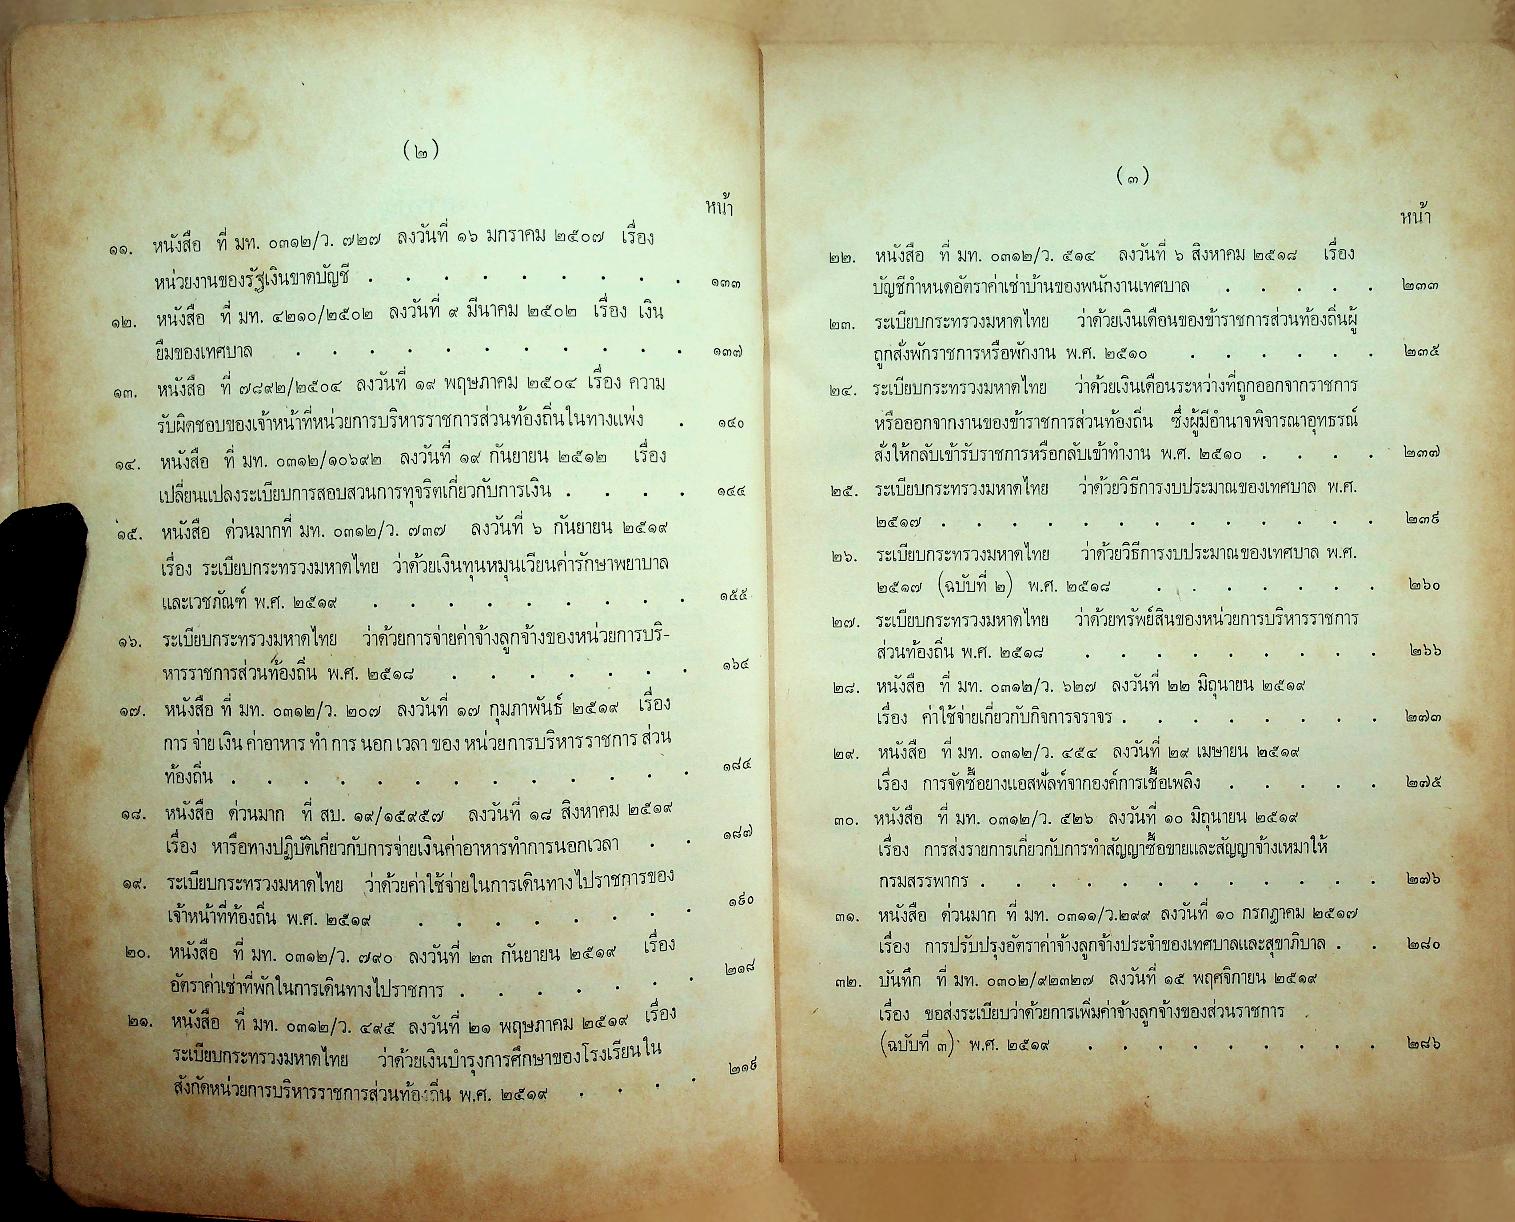 (๒)
หน้า
๑๑. หนังสือ ที่ มท. ๐๓๑๒/ว. ๗๒๗ ลงวันที่ ๑๖ มกราคม ๒๕๐๗ เรื่อง
หน่วยงานของรัฐเงินขาดบัญชี . . . . . . . . . ๑๓๓
๑๒. หนังสือ ที่ มท. ๔๒๑๐/๒๕๐๒ ลงวันที่ ๙ มีนาคม ๒๕๐๒ เรื่อง เงิน
ยืมของเทศบาล . . . . . . . . . . . ๑๓๗
๑๓. หนังสือ ที่ ๗๘๙๒/๒๕๐๔ ลงวันที่ ๑๙ พฤษภาคม ๒๕๐๔ เรื่อง ความ
รับผิดชอบของเจ้าหน้าที่หน่วยการบริหารราชการส่วนท้องถิ่นในทางแพ่ง . ๑๔๐
๑๔. หนังสือ ที่ มท. ๐๓๑๒/๑๐๖๙๒ ลงวันที่ ๑๙ กันยายน ๒๕๑๒ เรื่อง
เปลี่ยนแปลงระเบียบการสอบสวนการทุจริตเกี่ยวกับการเงิน . . . . ๑๔๔
๑๕. หนังสือ ด่วนมากที่ มท. ๐๓๑๒/ว. ๗๓๗ ลงวันที่ ๖ กันยายน ๒๕๑๙
เรื่อง ระเบียบกระทรวงมหาดไทย ว่าด้วยเงินทุนหมุนเวียนค่ารักษาพยาบาล
และเวชภัณฑ์ พ.ศ. ๒๕๑๙ . . . . . . . . . ๑๕๕
๑๖. ระเบียบกระทรวงมหาดไทย ว่าด้วยการจ่ายค่าจ้างลูกจ้างของหน่วยการบริ-
หารราชการส่วนท้องถิ่น พ.ศ. ๒๕๑๘ . . . . . . . ๑๖๔
๑๗. หนังสือ ที่ มท. ๐๓๑๒/ว. ๒๐๗ ลงวันที่ ๑๗ กุมภาพันธ์ ๒๕๑๙ เรื่อง
การ จ่าย เงิน ค่าอาหาร ทำ การ นอก เวลา ของ หน่วยการบริหารราชการ ส่วน
ท้องถิ่น . . . . . . . . . . . . . ๑๘๔
๑๘. หนังสือ ด่วนมาก ที่ สบ. ๑๙/๑๕๙๕๗ ลงวันที่ ๑๘ สิงหาคม ๒๕๑๙
เรื่อง หารือทางปฏิบัติเกี่ยวกับการจ่ายเงินค่าอาหารทำการนอกเวลา . . ๑๘๗
๑๙. ระเบียบกระทรวงมหาดไทย ว่าด้วยค่าใช้จ่ายในการเดินทางไปราชการของ
เจ้าหน้าที่ท้องถิ่น พ.ศ. ๒๕๑๙ . . . . . . . . ๑๙๐
๒๐. หนังสือ ที่ มท. ๐๓๑๒/ว. ๗๙๐ ลงวันที่ ๒๓ กันยายน ๒๕๑๙ เรื่อง
อัตราค่าเช่าที่พักในการเดินทางไปราชการ . . . . . . . ๒๑๘
๒๑. หนังสือ ที่ มท. ๐๓๑๒/ว. ๔๙๕ ลงวันที่ ๒๑ พฤษภาคม ๒๕๑๙ เรื่อง
ระเบียบกระทรวงมหาดไทย ว่าด้วยเงินบำรุงการศึกษาของโรงเรียนใน
สังกัดหน่วยการบริหารราชการส่วนท้องถิ่น พ.ศ. ๒๕๑๙ . . . . ๒๑๙
(๓)
หน้า
๒๒. หนังสือ ที่ มท. ๐๓๑๒/ว. ๕๑๔ ลงวันที่ ๖ สิงหาคม ๒๕๑๘ เรื่อง
บัญชีกำหนดอัตราค่าเช่าบ้านของพนักงานเทศบาล . . . . . ๒๓๓
๒๓. ระเบียบกระทรวงมหาดไทย ว่าด้วยเงินเดือนของข้าราชการส่วนท้องถิ่นผู้
ถูกสั่งพักราชการหรือพักงาน พ.ศ. ๒๕๑๐ . . . . . . ๒๓๕
๒๔. ระเบียบกระทรวงมหาดไทย ว่าด้วยเงินเดือนระหว่างที่ถูกออกจากราชการ
หรือออกจากงานของข้าราชการส่วนท้องถิ่น ซึ่งผู้มีอำนาจพิจารณาอุทธรณ์
สั่งให้กลับเข้ารับราชการหรือกลับเข้าทำงาน พ.ศ. ๒๕๑๐ . . . . ๒๓๗
๒๕. ระเบียบกระทรวงมหาดไทย ว่าด้วยวิธีการงบประมาณของเทศบาล พ.ศ.
๒๕๑๗ . . . . . . . . . . . . . . ๒๓๙
๒๖. ระเบียบกระทรวงมหาดไทย ว่าด้วยวิธีการงบประมาณของเทศบาล พ.ศ.
๒๕๑๗ (ฉบับที่ ๒) พ.ศ. ๒๕๑๘ . . . . . . . ๒๖๐
๒๗. ระเบียบกระทรวงมหาดไทย ว่าด้วยทรัพย์สินของหน่วยการบริหารราชการ
ส่วนท้องถิ่น พ.ศ. ๒๕๑๘ . . . . . . . . . ๒๖๖
๒๘. หนังสือ ที่ มท. ๐๓๑๒/ว. ๖๒๗ ลงวันที่ ๒๒ มิถุนายน ๒๕๑๙
เรื่อง ค่าใช้จ่ายเกี่ยวกับกิจการจราจร . . . . . . . . ๒๗๓
๒๙. หนังสือ ที่ มท. ๐๓๑๒/ว. ๔๕๔ ลงวันที่ ๒๙ เมษายน ๒๕๑๙
เรื่อง การจัดซื้อยางแอสฟัลท์จากองค์การเชื้อเพลิง . . . . . ๒๗๕
๓๐. หนังสือ ที่ มท. ๐๓๑๒/ว. ๕๒๖ ลงวันที่ ๑๐ มิถุนายน ๒๕๑๙
เรื่อง การส่งรายการเกี่ยวกับการทำสัญญาซื้อขายและสัญญาจ้างเหมาให้
กรมสรรพากร . . . . . . . . . . . . ๒๗๖
๓๑. หนังสือ ด่วนมาก ที่ มท. ๐๓๑๑/ว.๒๙๙ ลงวันที่ ๑๐ กรกฎาคม ๒๕๑๗
เรื่อง การปรับปรุงอัตราค่าจ้างลูกจ้างประจำของเทศบาลและสุขาภิบาล . . ๒๘๐
๓๒. บันทึก ที่ มท. ๐๓๐๒/๙๒๓๒๗ ลงวันที่ ๑๕ พฤศจิกายน ๒๕๑๙
เรื่อง ขอส่งระเบียบว่าด้วยการเพิ่มค่าจ้างลูกจ้างของส่วนราชการ
(ฉบับที่ ๓) พ.ศ. ๒๕๑๙ . . . . . . . . . ๒๘๖